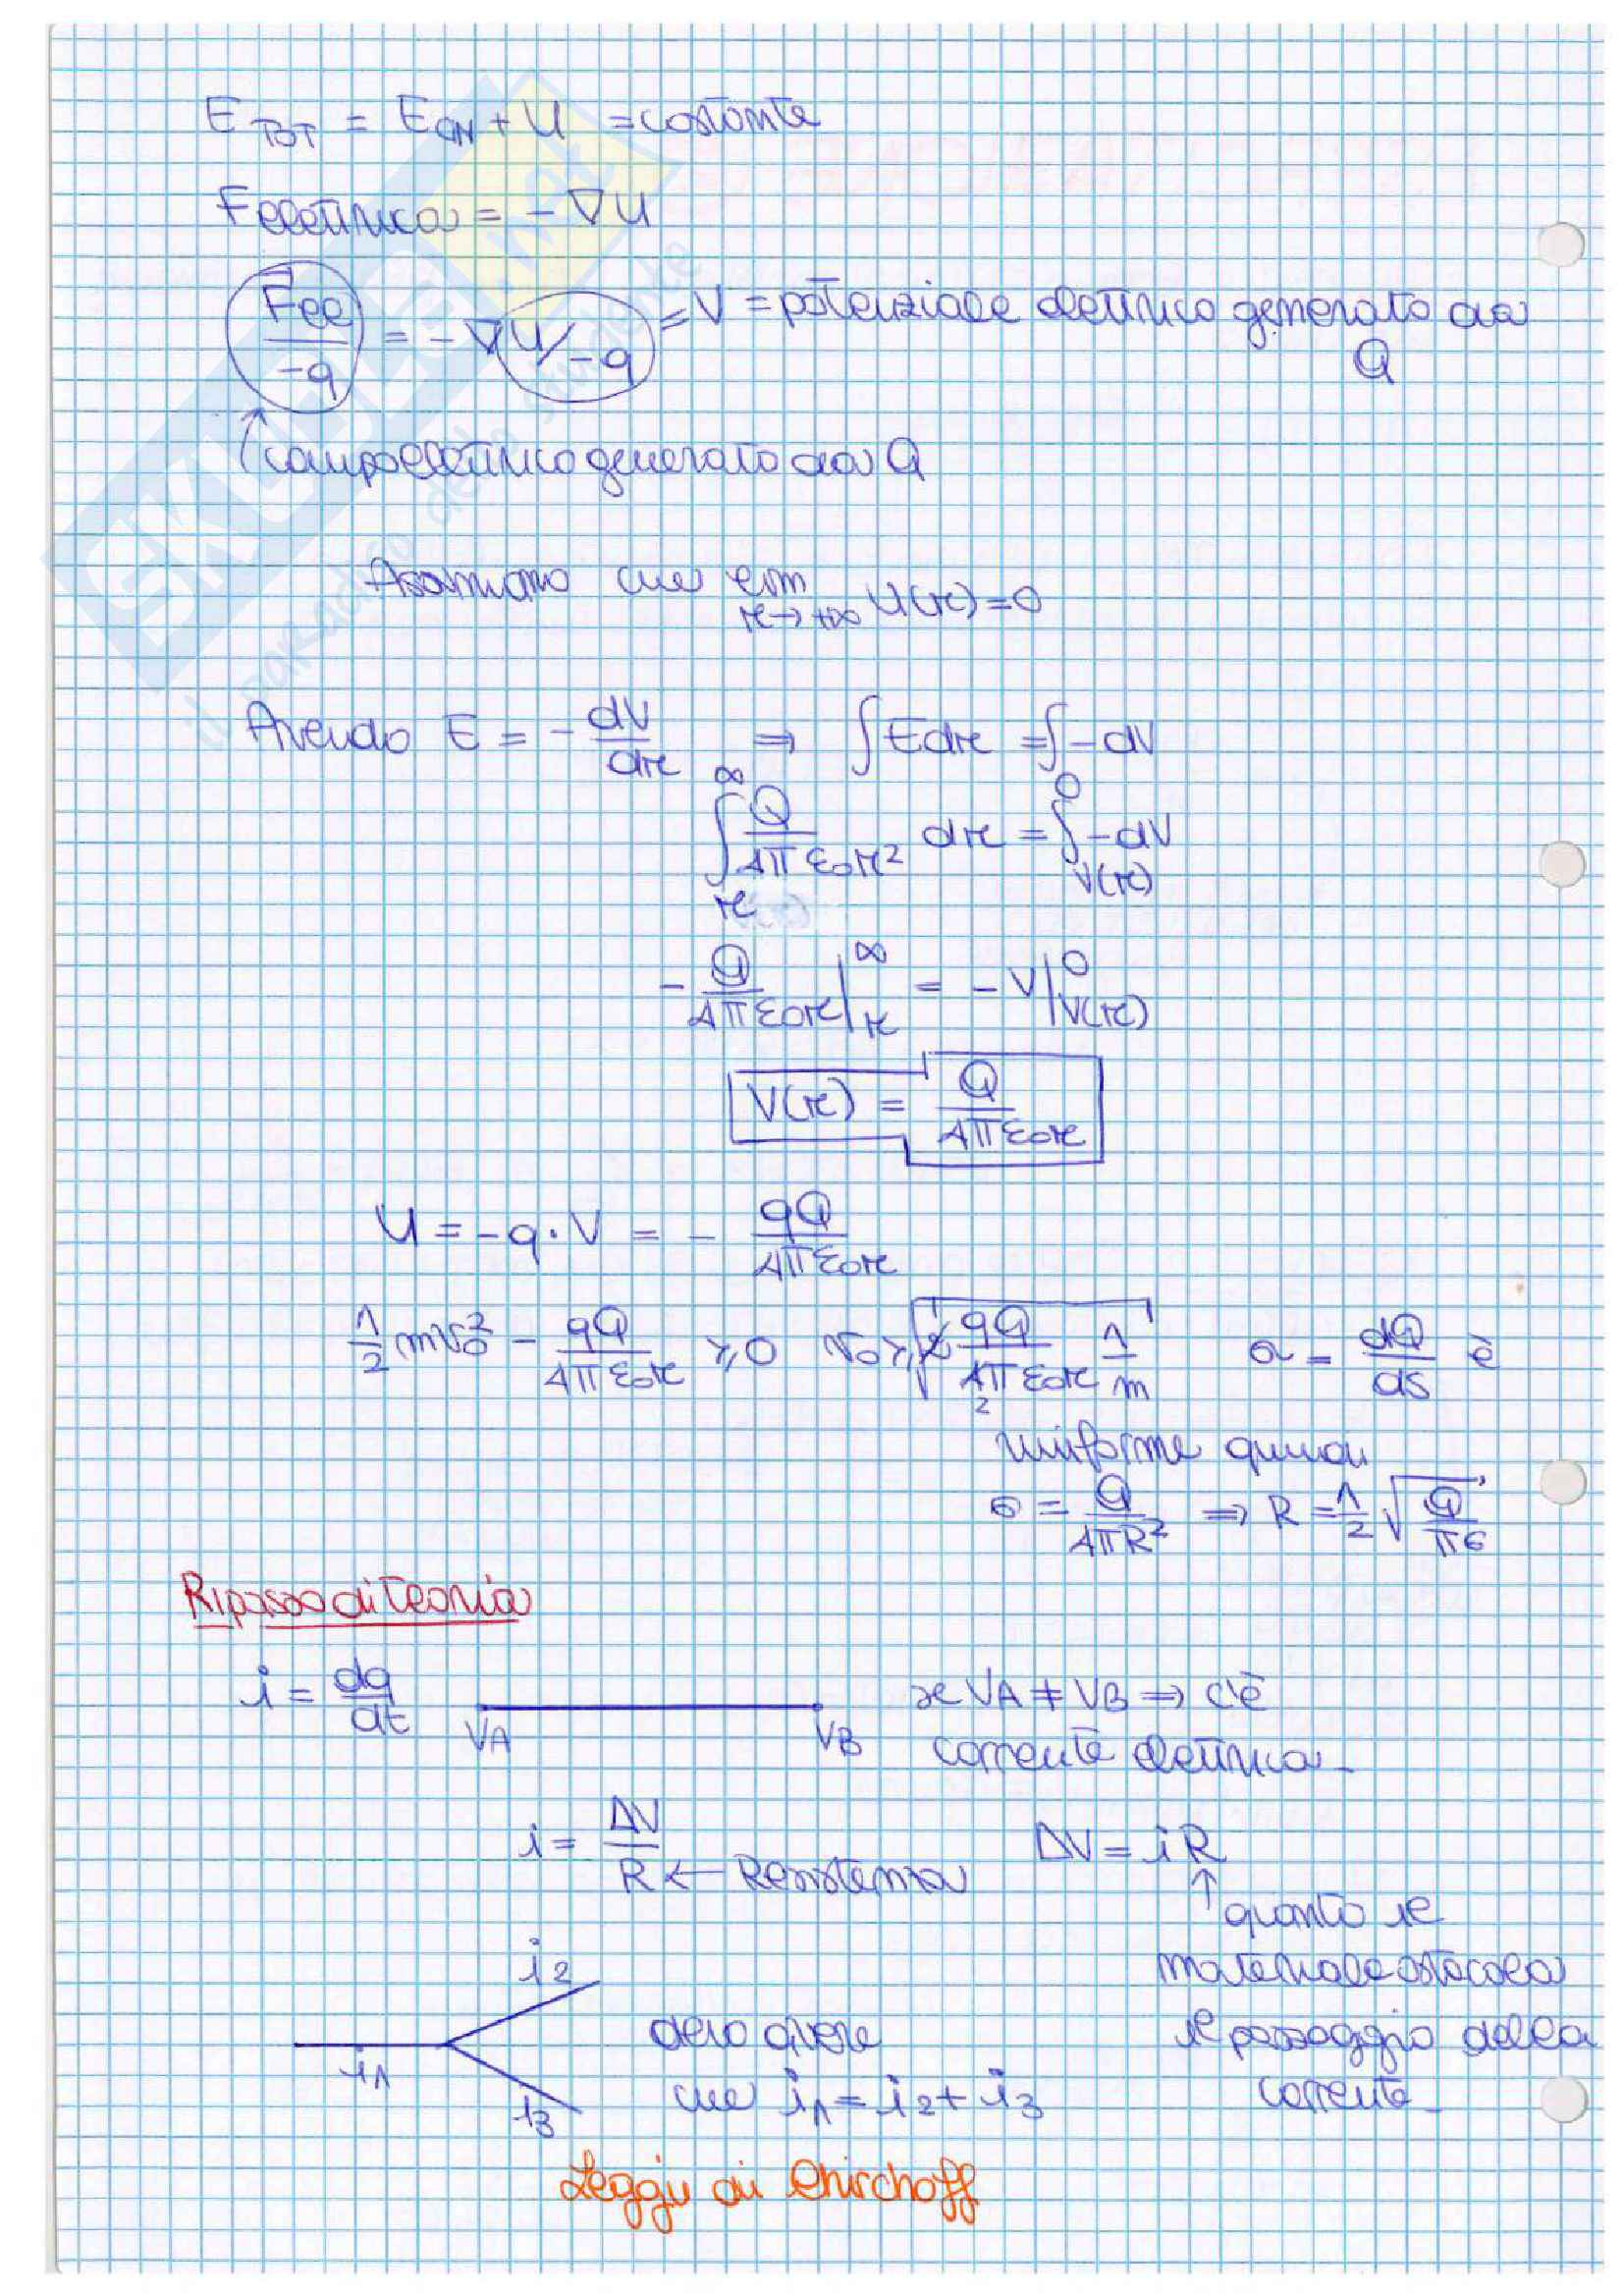 E_TOT = E_CIN + U = costante
Felettrica = - ∇U
Fel/-q = - ∇ U/-q = V = potenziale elettrico generato da Q
campo elettrico generato da Q
Assumiamo che lim r→+∞ U(r) = 0
Avendo E = - dV/dr ⇒ ∫ E dr = ∫ - dV
∫_r^∞ Q/4πε₀r² dr = ∫_V(r)^0 - dV
- Q/4πε₀r |_r^∞ = - V |_V(r)^0
V(r) = Q/4πε₀r
U = - q · V = - qQ/4πε₀r
1/2 mv₀² - qQ/4πε₀r ⩾ 0 v₀ ⩾ √(2 qQ/4πε₀r 1/m) σ = dQ/ds è
2
uniforme quindi
σ = Q/4πR² ⇒ R = 1/2 √(Q/πσ)
Ripasso di teoria
i = dq/dt VA VB se VA ≠ VB ⇒ c'è
corrente elettrica_
i = ΔV/R ← Resistenza ΔV = i R
↑ quanto il
materiale ostacola
il passaggio della
corrente_
i2
i1
i3
devo avere
che i1 = i2 + i3
Leggi di Chirchoff
SKUOLA.net
il paradiso dello studente